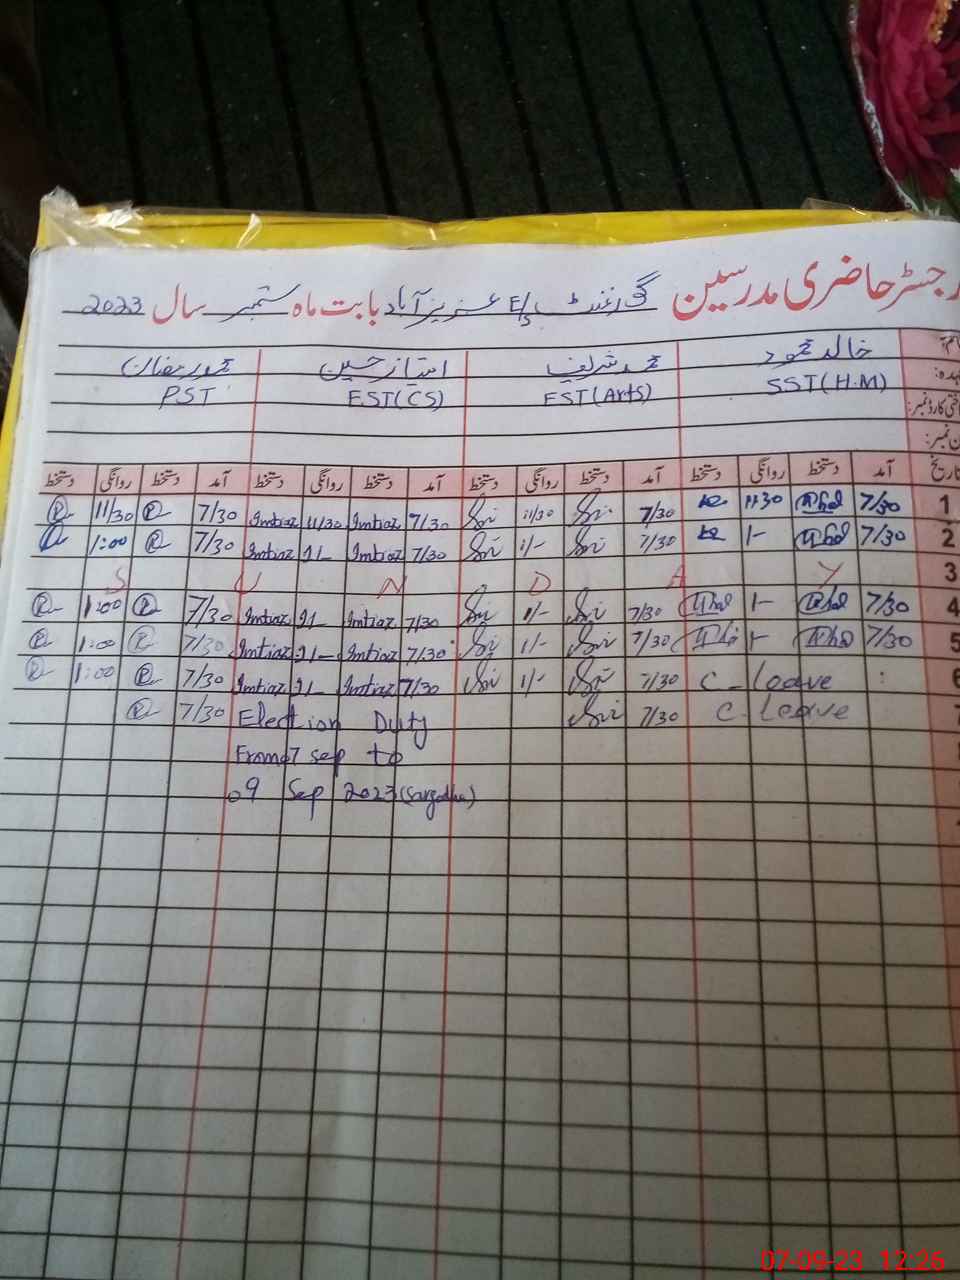 رجسٹر حاضری مدرسین گورنمنٹ E/S عزیز آباد بابت ماہ ستمبر سال 2023
خالد محمود محمد شریف امتیاز حسین محمد رمضان
SST(H.M) EST(Arts) EST(CS) PST
تاریخ آمد دستخط روانگی دستخط آمد دستخط روانگی دستخط آمد دستخط روانگی دستخط آمد دستخط روانگی دستخط
1 7/30 11 30 7/30 11/30 7/30 Imtiaz 11/30 Imtiaz 7/30 11/30
2 7/30 1- 7/30 1/- 7/30 Imtiaz 1- Imtiaz 7/30 1:00
3 S U N D A Y
4 7/30 1- 7/30 1/- 7/30 Imtiaz 1- Imtiaz 7/30 1:00
5 7/30 1- 7/30 1/- 7/30 Imtiaz 1- Imtiaz 7/30 1:00
6 C - leave 7/30 1/- 7/30 Imtiaz 1- Imtiaz 7/30 1:00
7 C. Leave 7/30 Election Duty 7/30
From 7 sep to
09 Sep 2023 (Sargodha)
07-09-23 12:26